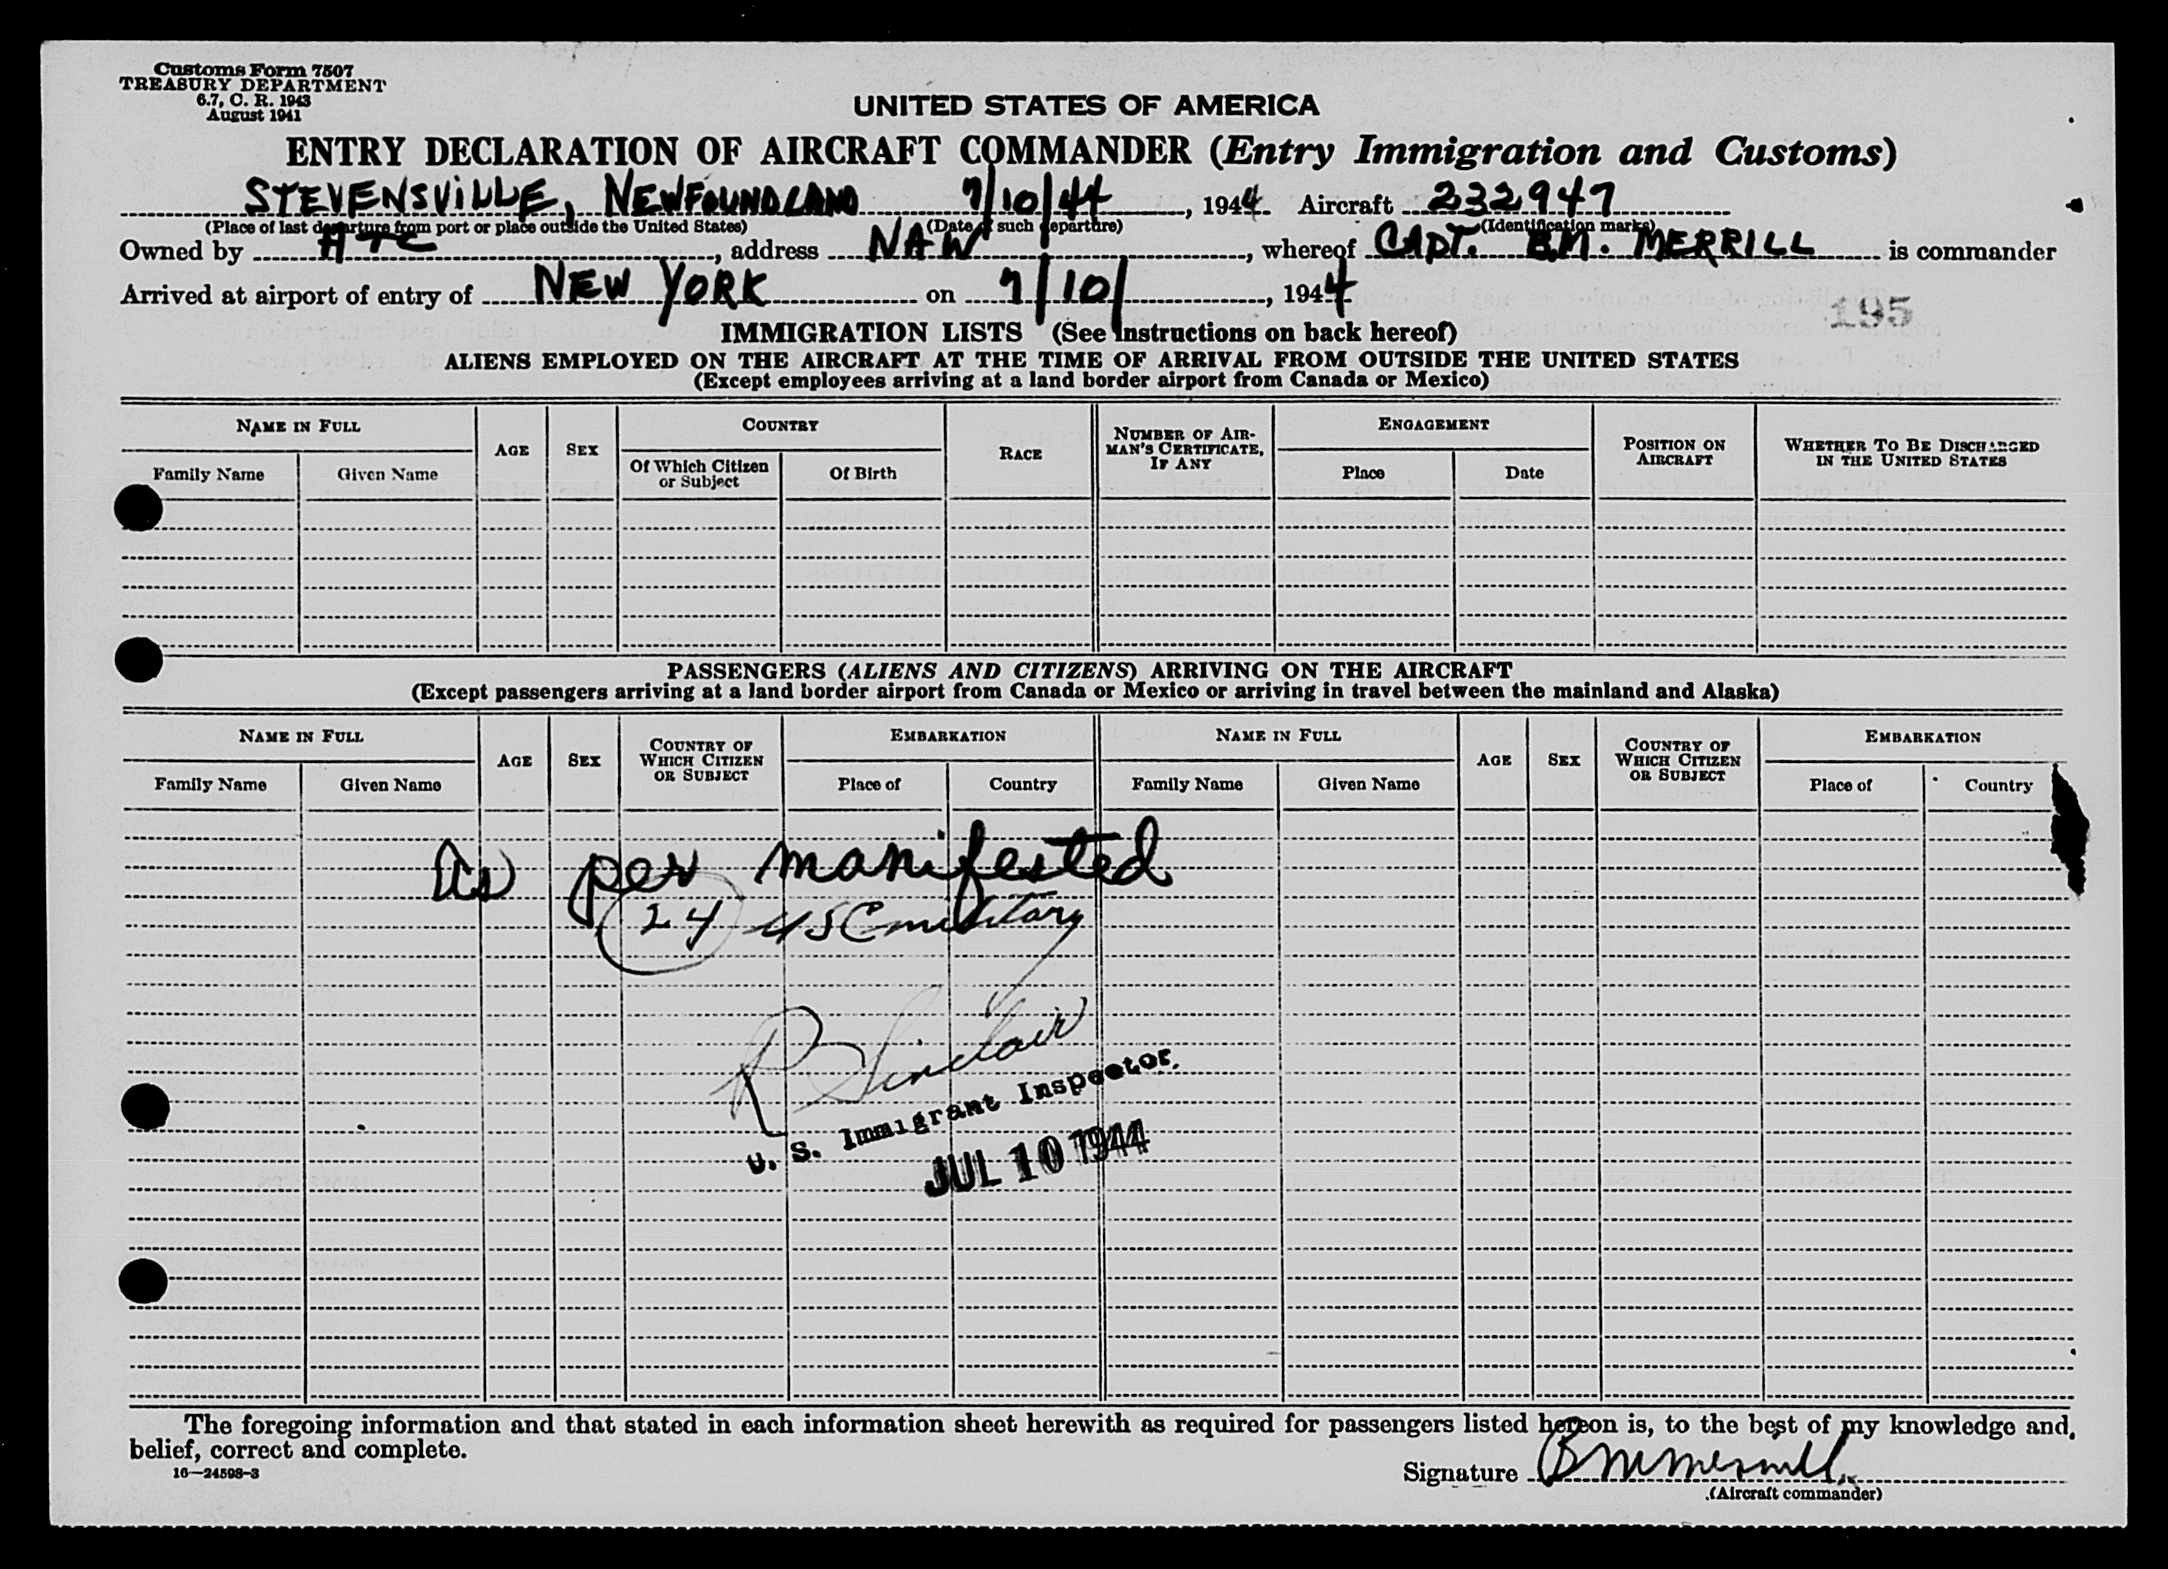 Customs Form 7507
TREASURY DEPARTMENT
6.7, C. R. 1943
August 1941
UNITED STATES OF AMERICA
ENTRY DECLARATION OF AIRCRAFT COMMANDER (Entry Immigration and Customs)
STEVENSVILLE, NEWFOUNDLAND 7/10/44, 1944 Aircraft 232947
(Place of last departure from port or place outside the United States) (Date of such departure) (Identification marks)
Owned by ATC, address NAW, whereof CAPT. B.M. MERRILL is commander
Arrived at airport of entry of NEW YORK on 7/10/, 1944
195
IMMIGRATION LISTS (See Instructions on back hereof)
ALIENS EMPLOYED ON THE AIRCRAFT AT THE TIME OF ARRIVAL FROM OUTSIDE THE UNITED STATES
(Except employees arriving at a land border airport from Canada or Mexico)
NAME IN FULL AGE SEX COUNTRY RACE NUMBER OF AIRMAN'S CERTIFICATE, IF ANY ENGAGEMENT POSITION ON AIRCRAFT WHETHER TO BE DISCHARGED IN THE UNITED STATES
Family Name Given Name Of Which Citizen or Subject Of Birth Place Date
PASSENGERS (ALIENS AND CITIZENS) ARRIVING ON THE AIRCRAFT
(Except passengers arriving at a land border airport from Canada or Mexico or arriving in travel between the mainland and Alaska)
NAME IN FULL AGE SEX COUNTRY OF WHICH CITIZEN OR SUBJECT EMBARKATION NAME IN FULL AGE SEX COUNTRY OF WHICH CITIZEN OR SUBJECT EMBARKATION
Family Name Given Name Place of Country Family Name Given Name Place of Country
As per manifested
24 USC military
R Sinclair
U. S. Immigrant Inspector.
JUL 10 1944
The foregoing information and that stated in each information sheet herewith as required for passengers listed hereon is, to the best of my knowledge and
belief, correct and complete.
16—24598-3
Signature B M Merrill
(Aircraft commander)